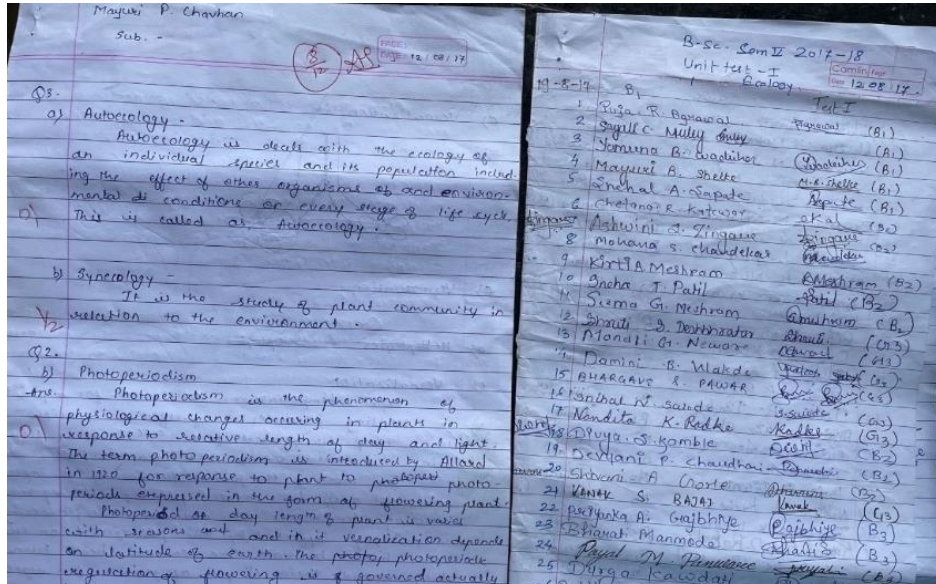 Mayuri P. Chavhan
Sub. -
PAGE:
DATE: 12/08/17
8/12
Q3.
a) Autoecology -
Autoecology is deals with the ecology of
an individual species and its population includ-
ing the effect of other organisms and environ-
mental conditions on every stage of life sycle.
This is called as Autoecology.
b) Synecology -
It is the study of plant community in
relection to the environment.
1/2
Q2.
b) Photoperiodism
Ans. Photoperiodism is the phenomenon of
physiological changes occuring in plants in
response to relative length of day and light.
The term photoperiodism is introduced by Allard
in 1920 for response to plant to photo
periods expressed in the form of flowering plant.
Photoperiod or day length of plant is varies
with seasons and and in it vernalization depends
on latitude of earth. The photoperiodic
regulation of flowering is governed actually
B.Sc. Sem II 2017-18
Unit test - I
Ecology
Camlin Page
Date 12 08 17
19-8-17 B1 Test I
1 Puja R. Agrawal (B1)
2 Sayali C. Muley (A1)
3 Yamuna B. (B1)
4 Mayuri B. Shelke M.B. Shelke (B1)
5 Snehal A. Sapate (B1)
6 Chetana R. Katwar
Ashwini S. Zingare Zingare (B2)
8 Mohana S. Chandekar
9 Kirti A Meshram Meshram (B2)
10 Sneha T. Patil Patil (B2)
11 Seema G. Meshram Gmeshram (B2)
12 Shruti S. Shruti (G3)
13 G. Neware (G3)
14 Damini B. Wakde (G3)
15 BHARGAVE S. PAWAR (G3)
16 Snehal N. Sainde (G3)
17 Nandita K. Radke Radke (G3)
18 Divya S. Kamble (B2)
19. Devyani P. Chaudhari (B2)
20 Shivani A Ghorle (B2)
21 KANAK S. BAJAJ Kanak (G3)
22 Priyanka A. Gajbhiye Gajbhiye (B3)
23 Bharati Manmode Bharati (B3)
24 Payal M
25 Durga Kawdati